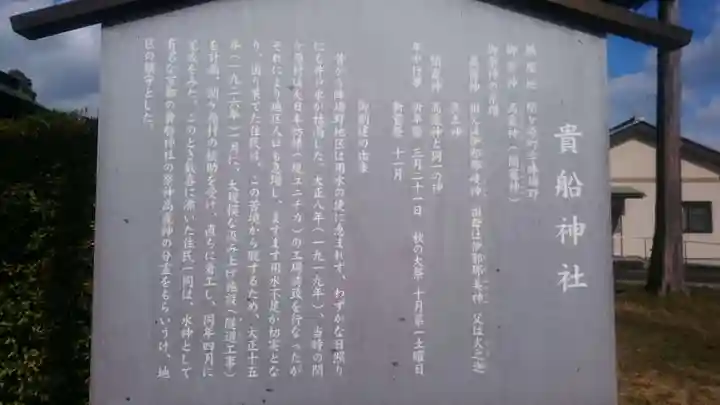 貴船神社
鎮座地 関ケ原町
御祭神 高龗神（闇龗神）
御祭神の系譜
高龗神 祖父は伊邪那岐神、祖母は伊邪那美神、父は火之迦
具土神
闇龗神 高龗神と同一の神
年中行事 祈年祭 三月二十一日 秋の大祭 十月第一土曜日
新嘗祭 十一月
御創建の由来
昔から陣場野地区は用水の便に恵まれず、わずかな日照り
にも井戸水が枯渇した。大正八年（一九一九年）、当時の関
ケ原村は大日本紡績（現ユニチカ）の工場誘致を行なったが
それにより地区人口も急増し、ますます用水不足が切実とな
り、困り果てた住民は、この苦境から脱するため、大正十五
年（一九二六年）二月に、大規模な水汲み上げ施設（隧道工事）
を計画、関ケ原村の補助を受け、直ちに着工し、同年四月に
完成をみた。このとき歓喜に沸いた住民一同は、水神として
有名な京都の貴船神社の祭神高龗神の分霊をもらいうけ、地
区の鎮守とした。